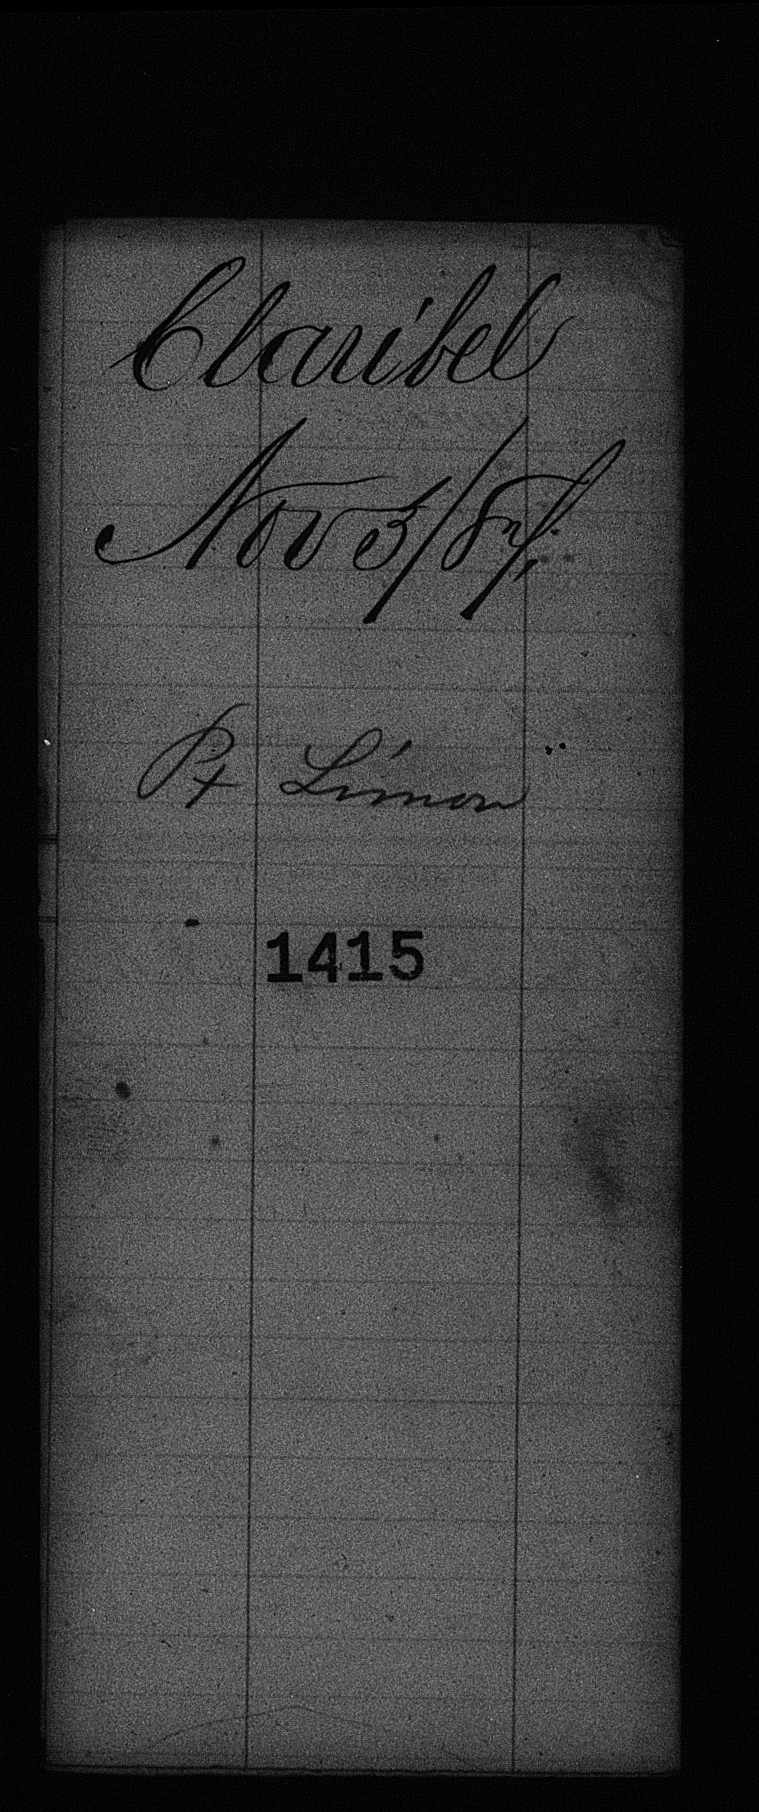 Claribel
Nov 3/87.
Pt Limon
1415